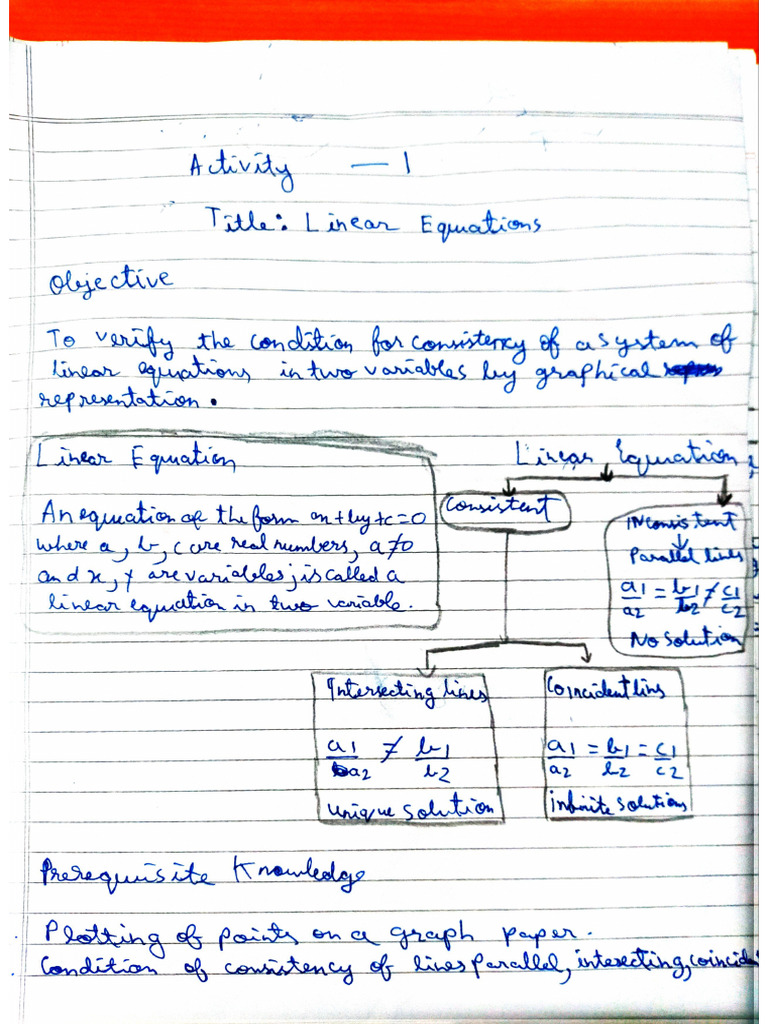 Activity — 1
Title: Linear Equations
Objective
To verify the condition for consistency of a system of
linear equations in two variables by graphical
representation.
Linear Equation
An equation of the form ax+by+c=0
where a, b, c are real numbers, a≠0
and x, y are variables, is called a
linear equation in two variable.
Linear Equation
Consistent
INconsistent
Parallel lines
a1/a2 = b1/b2 ≠ c1/c2
No solution
Intersecting lines
a1/a2 ≠ b1/b2
unique solution
Coincident lins
a1/a2 = b1/b2 = c1/c2
infinite solutions
Prerequisite Knowledge
. Plotting of points on a graph paper.
. Condition of consistency of lines parallel, intesecting, coincide